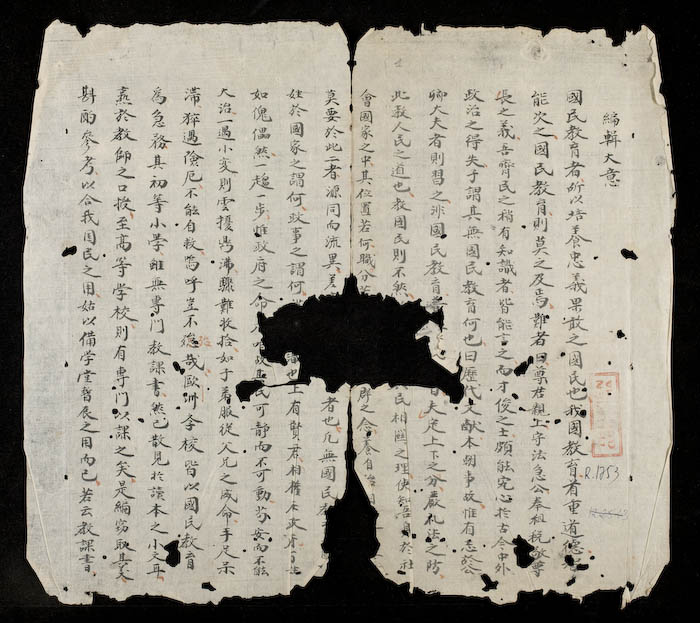 編輯大意
國民教育者所以培養忠義果敢之國民也我國教育首重道德
能次之國民教育則莫之及焉難者曰尊君親上守法急公奉租稅敬尊
長之義吾齊民之稍有知識者皆能言之而才俊之士頗能究心於古今中外
政治之得失子謂其無國民教育何也曰歷代文獻本朝事故惟有志於公
卿大夫者則習之非國民教育 夫定上下之分嚴礼法之防
此教人民之道也教國民則不然 民相關之理使知吾身於社
會國家之中其位置若何職分 群之念養自治
莫要於此二者源同而流異 者也凡無國民
姓於國家之謂何政事之謂何 也上有賢君相權
如傀儡然一趨一步惟政府之命 民可靜而不可動苟安而不能
大治一遇小变則雲擾馬沸驟難收拾如子弟服從父兄之成命手足
滯猝遇險厄不能自救嗚呼豈不 哉歐州各校皆以國民教育
為急務其初等小學雖無專門教課書然已散見於讀本之小文耳
熹於教師之口授至高等學校則有專門以課之矣是編窃取其
斟酌參考以合我國民之用姑以備学堂暫長之用而已若云教課書
R.1753